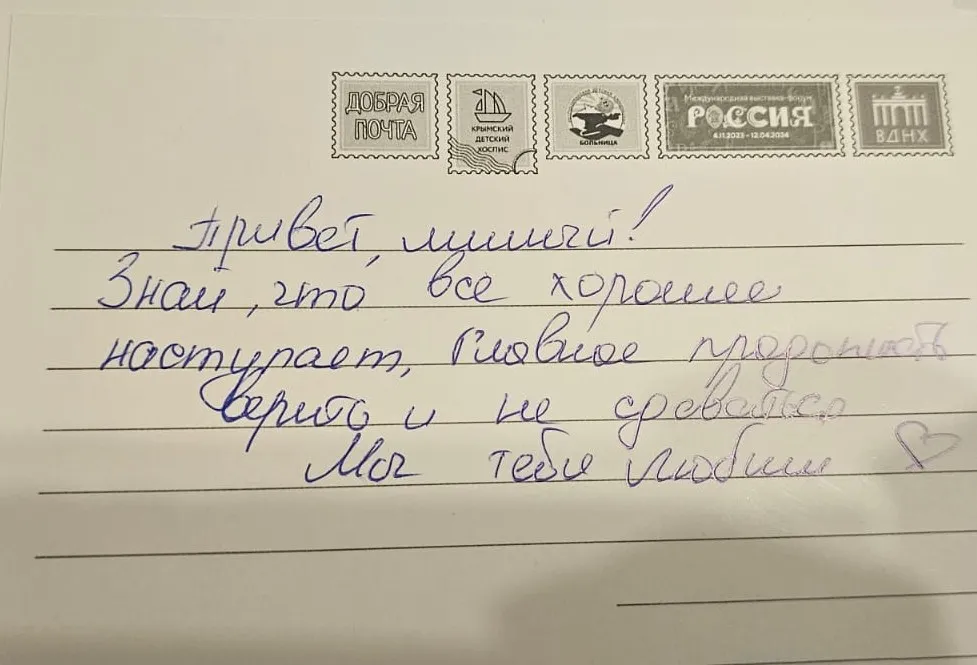 ДОБРАЯ ПОЧТА
КРЫМСКИЙ ДЕТСКИЙ ХОСПИС
БОЛЬНИЦА
Международная выставка-форум
РОССИЯ
4.11.2023 - 12.04.2024
ВДНХ
Привет, милый!
Знай, что все хорошее
наступает, Главное продолжать
верить и не сдаваться
Мы тебя любим ♡